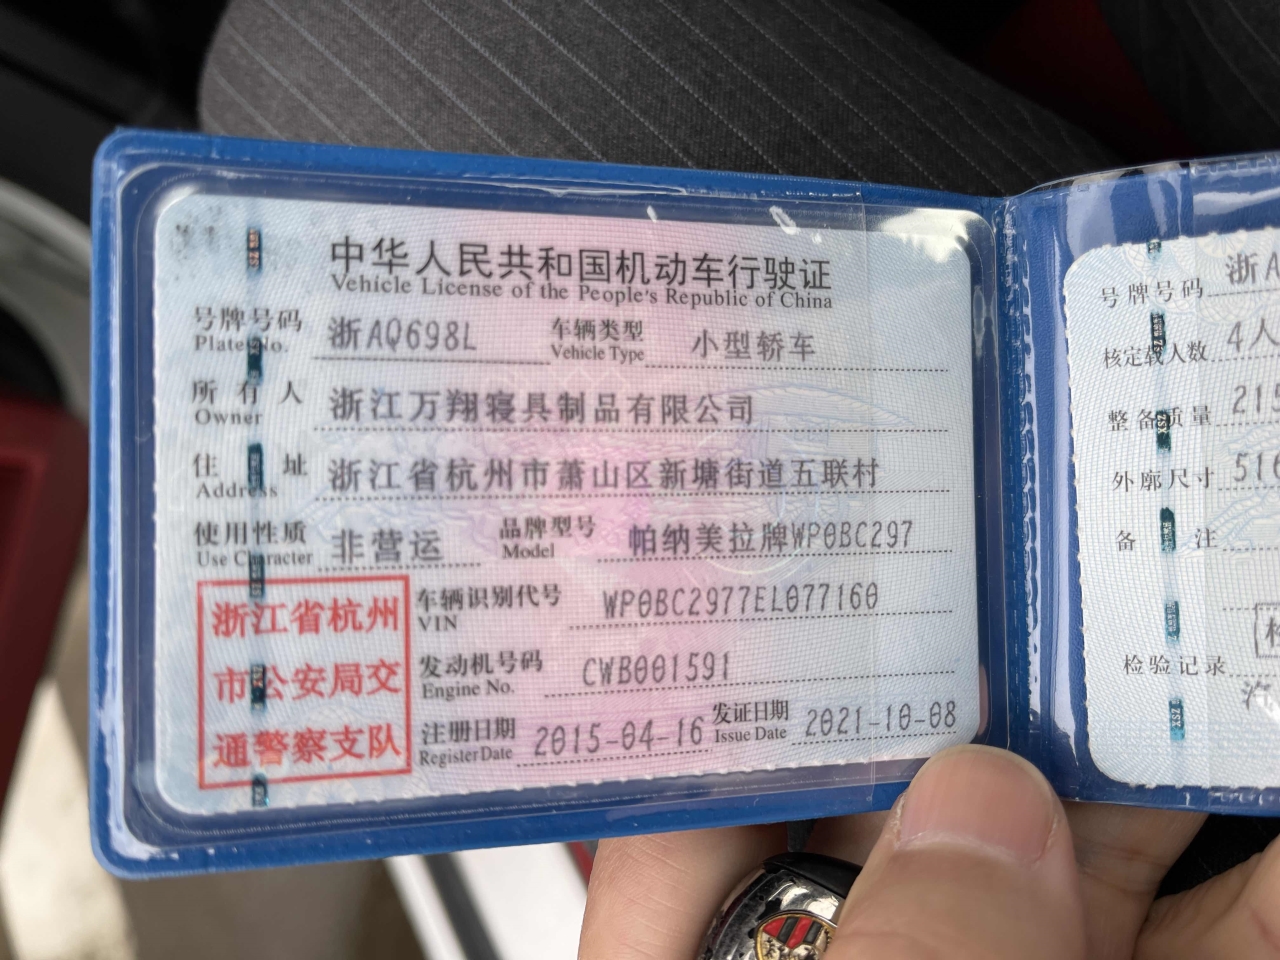 中华人民共和国机动车行驶证
Vehicle License of the People's Republic of China
号牌号码 浙AQ698L 车辆类型 小型轿车
Plate No. Vehicle Type
所有人 浙江万翔寝具制品有限公司
Owner
住址 浙江省杭州市萧山区新塘街道五联村
Address
使用性质 非营运 品牌型号 帕纳美拉牌WP0BC297
Use Character Model
浙江省杭州
市公安局交
通警察支队
车辆识别代号 WP0BC2977EL077160
VIN
发动机号码 CWB001591
Engine No.
注册日期 2015-04-16 发证日期 2021-10-08
Register Date Issue Date
号牌号码 浙A
核定载人数 4人
整备质量 21
外廓尺寸 516
备注
检验记录